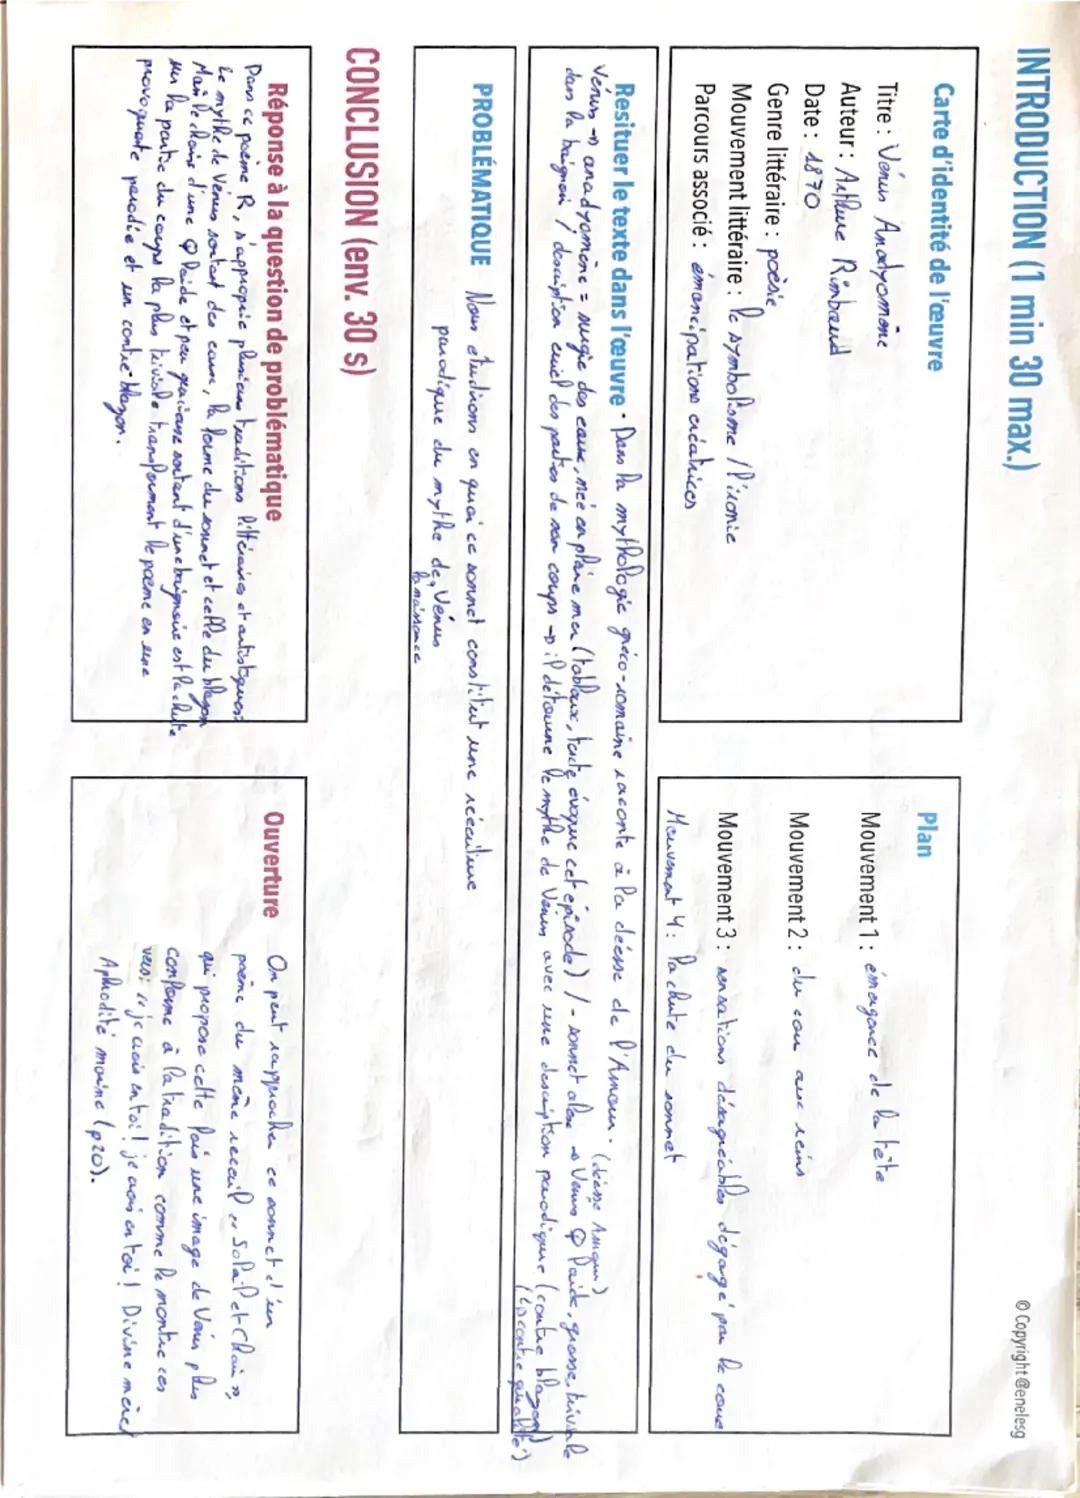 INTRODUCTION (1 min 30 max.)
© Copyright @enelesg
Carte d'identité de l'œuvre
Titre : Vénus Anadyomène
Auteur : Arthur Rimbaud
Date : 1870
Genre littéraire : poésie
Mouvement littéraire : le symbolisme / l'ironie
Parcours associé : émancipations créatrices
Plan
Mouvement 1 : émergence de la tête
Mouvement 2 : du cou aux reins
Mouvement 3 : sensations désagréables dégagé par le corps
Mouvement 4 : la chute du sonnet
Resituer le texte dans l'œuvre · Dans la mythologie gréco-romaine raconte à la déesse de l'Amour. (déesse Amour)
Vénus → anadyomène = surgie des eaux, née en pleine mer (tableaux, texte évoque cet épisode) / - sonnet → Vénus ♀ laide, grosse, triviale
dans la baignoire, description cruel des parties de son corps → il détourne le mythe de Vénus avec une description parodique (contre blason)
PROBLÉMATIQUE Nous étudirons en quoi ce sonnet constitue une réécriture
parodique du mythe de Vénus
la naissance
CONCLUSION (env. 30 s)
Réponse à la question de problématique
Dans ce poème R, s'approprie plusieurs traditions littéraires et artistiques:
le mythe de Vénus sortant des eaux, la forme du sonnet et celle du blason
Mais le choix d'une ♀ laide et peu gracieuse sortant d'une baignoire et la chute
sur la partie du corps la plus triviale transforment le poème en une
provoquante parodie et un contre-blason.
Ouverture
On peut rapprocher ce sonnet d'un
poème du même recueil "Soleil et Chair",
qui propose cette fois une image de Vénus plus
conforme à la tradition comme le montre ces
vers: "je crois en toi! je crois en toi! Divine mère,
Aphrodité marine (p20).